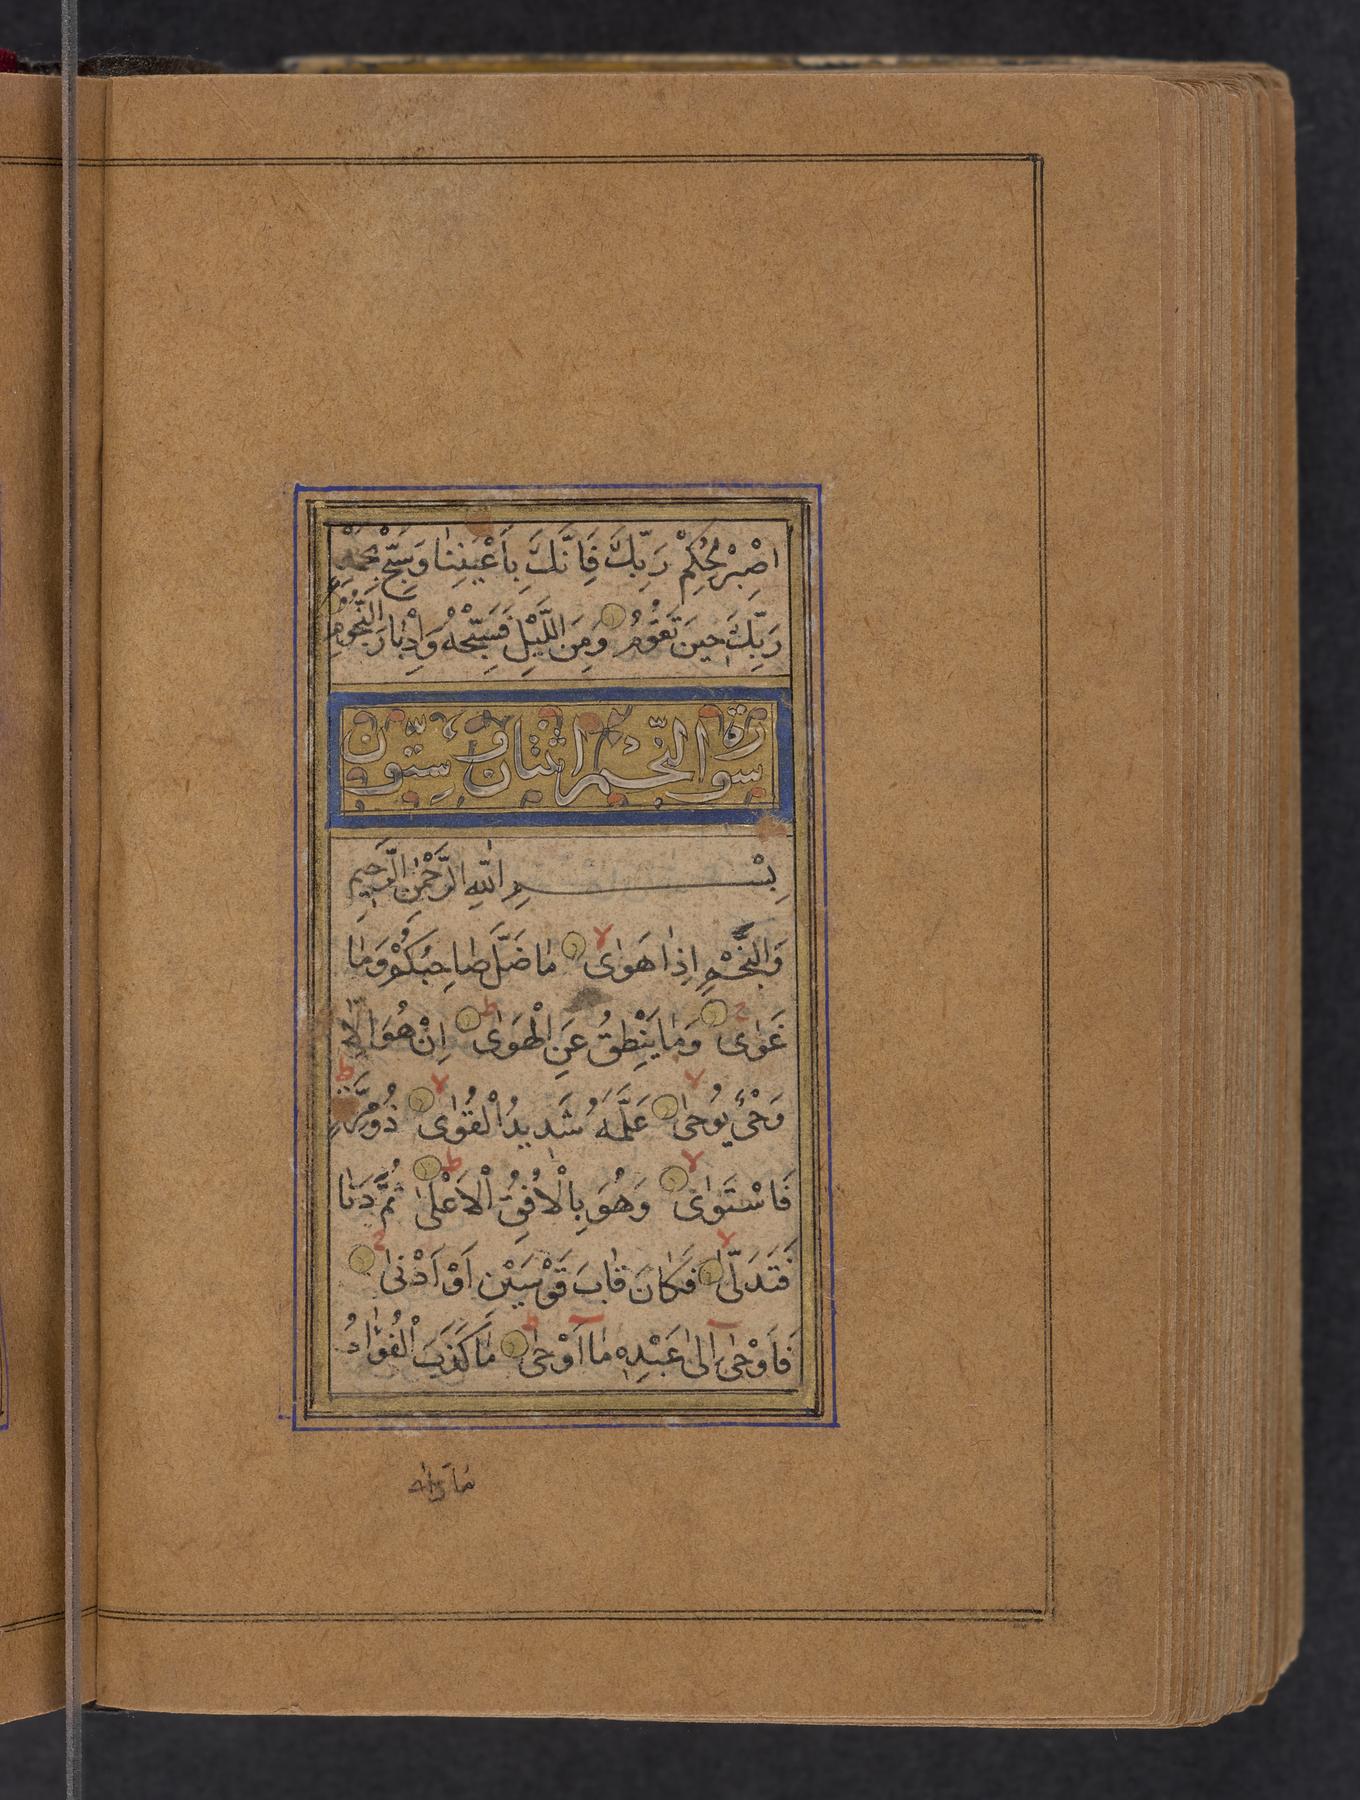 اصْبِرْ لِحُكْمِ رَبِّكَ فَاِنَّكَ بِاَعْيُنِنَا وَسَبِّحْ بِحَمْدِ
رَبِّكَ حِينَ تَقُومُ وَمِنَ اللَّيْلِ فَسَبِّحْهُ وَاِدْبَارَ النُّجُومِ
سورة النّجم اثنتان وستّون
بِسْمِ اللّٰهِ الرَّحْمٰنِ الرَّحِيمِ
وَالنَّجْمِ اِذَا هَوٰى مَا ضَلَّ صَاحِبُكُمْ وَمَا
غَوٰى وَمَا يَنْطِقُ عَنِ الْهَوٰى اِنْ هُوَ اِلَّا
وَحْىٌ يُوحٰى عَلَّمَهُ شَدِيدُ الْقُوٰى ذُومِرَّةٍ
فَاسْتَوٰى وَهُوَ بِالْاُفُقِ الْاَعْلٰى ثُمَّ دَنَا
فَتَدَلّٰى فَكَانَ قَابَ قَوْسَيْنِ اَوْ اَدْنٰى
فَاَوْحٰى اِلٰى عَبْدِهٖ مَا اَوْحٰى مَا كَذَبَ الْفُؤَادُ